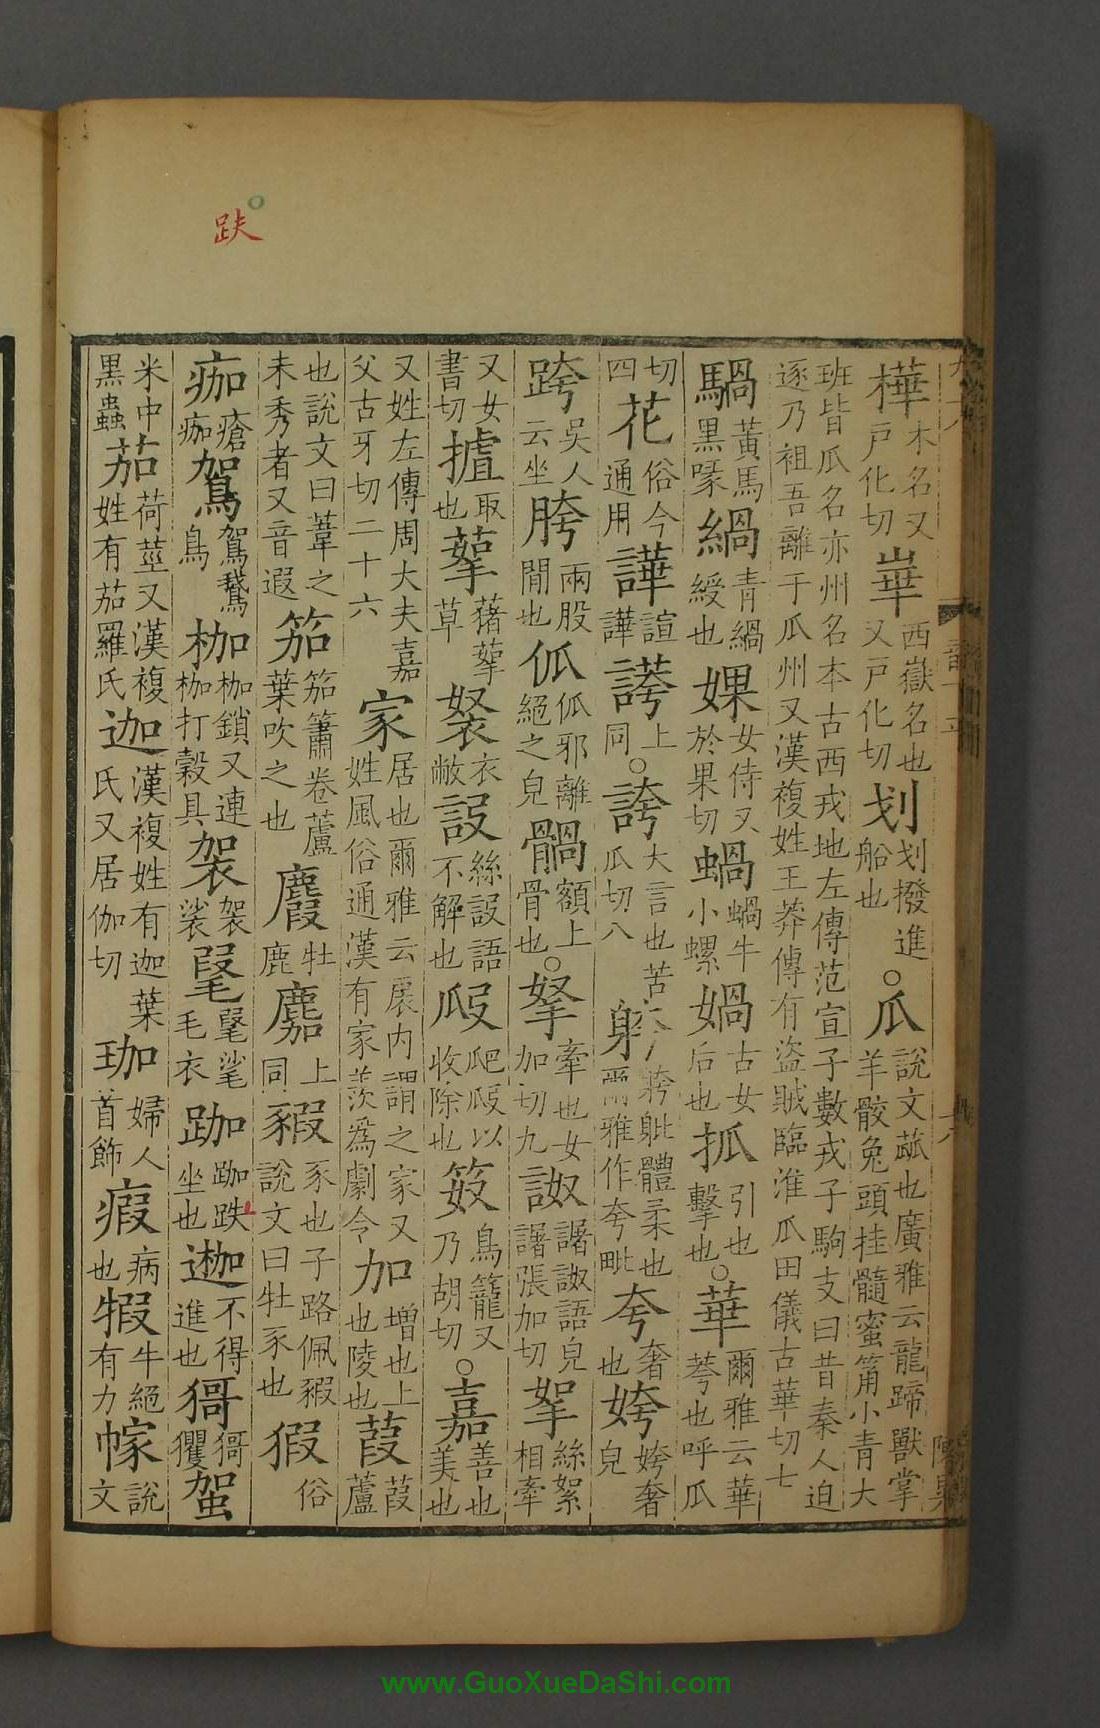 趺
樺木名又戶化切崋西嶽名也又戶化切划划撥進船也○瓜說文蓏也廣雅云龍蹄獸掌羊骹兔頭桂髓蜜筩小青大
班皆瓜名亦州名本古西戎地左傳范宣子數戎子駒支曰昔秦人迫逐乃祖吾離于瓜州又漢複姓王莽傳有盜賊臨淮瓜田儀古華切七
騧黃馬黑喙緺青緺綬也婐女侍又於果切蝸蝸牛小螺媧古女后也抓引也擊也○華爾雅云華荂也呼瓜
切四花俗今通用譁諠譁誇上同○誇大言也苦瓜切八躿躿躴體柔也爾雅作夸毗夸奢也姱姱奢皃
跨吳人云坐胯兩股閒也㐷㐷邪離絕之皃髃額上骨也○拏牽也女加切九詉譇詉語皃譇張加切挐絲絮相牽
又女書切㨋取也蒘蕏蒘草袈衣敝䛏絲䛏語不解也㼥爬㼥以收除也笯鳥籠又乃胡切○嘉善也美也
又姓左傳周大夫嘉父古牙切二十六家居也爾雅云扆內謂之家又姓風俗通漢有家羨為劇令加增也上也陵也葭葭蘆
也說文曰葦之未秀者又音遐笳笳簫卷蘆葉吹之也麚牡鹿麍上同豭豕也子路佩豭說文曰牡豕也猳俗
痂瘡痂鴐鴐鵝鳥枷枷鎖又連枷打穀具袈袈裟毠毠毟毛衣跏跏趺坐也迦不得進也㺔㺔玃䴥
米中黑蟲茄荷莖又漢複姓有茄羅氏迦漢複姓有迦葉氏又居伽切珈婦人首飾瘕病也犌牛絕有力幏說文